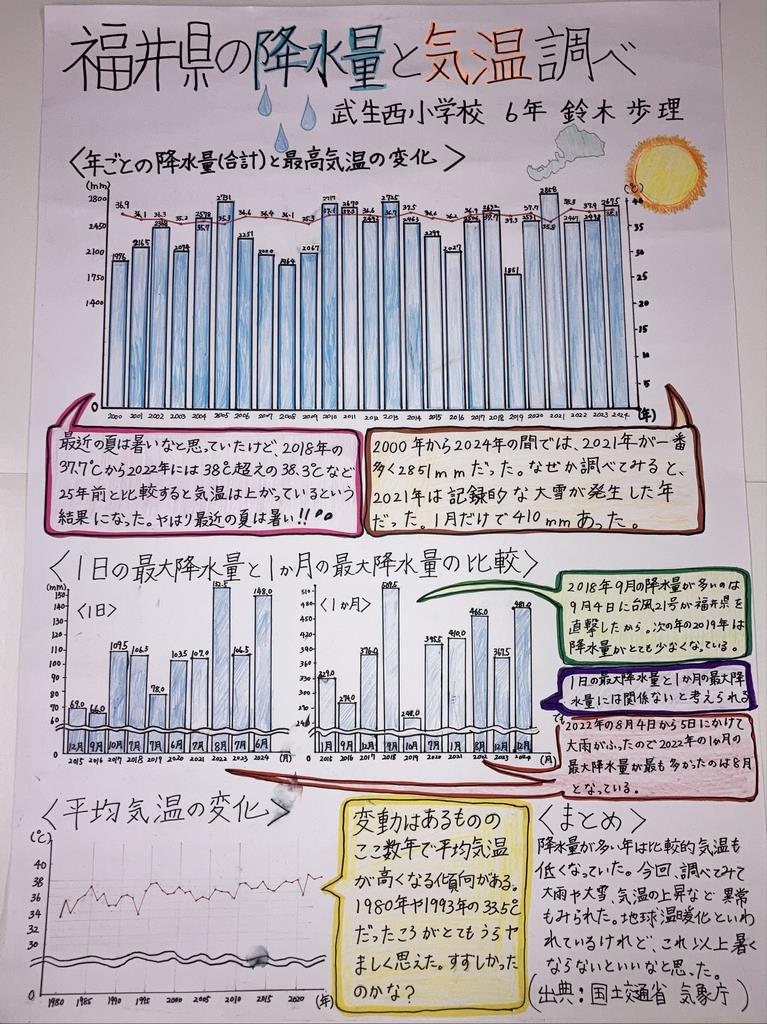 福井県の降水量と気温調べ
武生西小学校 6年 鈴木 歩理
〈年ごとの降水量(合計)と最高気温の変化〉
(mm)
(℃)
2800
2450
2100
1750
1400
0
40
35
30
25
20
15
10
5
36.9 36.1 36.3 35.2 35.7 35.3 36.6 36.4 36.1 35.3
1976 2165 2074 2578 2731 2257 2000 2067
2717 2670 2725 2463 2299 2027 2632 1851 2467 2675
37.5 36.2 36.9 37.7 37.7 35.8 38.3 37.9 38.1
2000 2001 2002 2003 2004 2005 2006 2007 2008 2009 2010 2011 2012 2013 2014 2015 2016 2017 2018 2019 2020 2021 2022 2023 2024 (年)
最近の夏は暑いなと思っていたけど、2018年の
37.7℃から2022年には38℃超えの38.3℃など
25年前と比較すると気温は上がっているという
結果になった。やはり最近の夏は暑い!!
2000年から2024年の間では、2021年が一番
多く2851mmだった。なぜか調べてみると、
2021年は記録的な大雪が発生した年
だった。1月だけで410mmあった。
〈1日の最大降水量と1か月の最大降水量の比較〉
(mm)
〈1日〉
150
140
130
120
110
100
90
80
70
60
0
69.0 66.0 109.5 106.5 78.0 103.5 107.0 106.5 148.0
12月 9月 10月 7月 7月 6月 7月 8月 7月 6月
2015 2016 2017 2018 2019 2020 2021 2022 2023 2024 (月)
(mm)
〈1か月〉
510
480
450
420
390
360
330
300
270
240
0
329.0 274.0 376.0 248.0 395.5 410.0 465.0 367.5
1月 9月 12月 9月 10月 7月 1月 8月 12月 12月
2015 2016 2017 2018 2019 2020 2021 2022 2023 2024 (月)
2018年9月の降水量が多いのは
9月4日に台風21号が福井県を
直撃したから。次の年の2019年は
降水量がとても少なくなっている。
1日の最大降水量と1か月の最大降
水量には関係ないと考えられる
でも
2022年の8月4日から5日にかけて
大雨がふったので2022年の1か月の
最大降水量が最も多かったのは8月
となっている。
〈平均気温の変化〉
(℃)
40
38
36
34
32
30
0
1980 1985 1990 1995 2000 2005 2010 2015 2020 (年)
変動はあるものの
ここ数年で平均気温
が高くなる傾向がある。
1980年や1993年の33.5℃
だったころがとてもうらや
ましく思えた。すずしかった
のかな?
〈まとめ〉
降水量が多い年は比較的気温も
低くなっていた。今回、調べてみて
大雨や大雪、気温の上昇など 異常
もみられた。地球温暖化といわ
れているけれど、これ以上暑く
ならないといいなと思った。
(出典:国土交通省 気象庁)